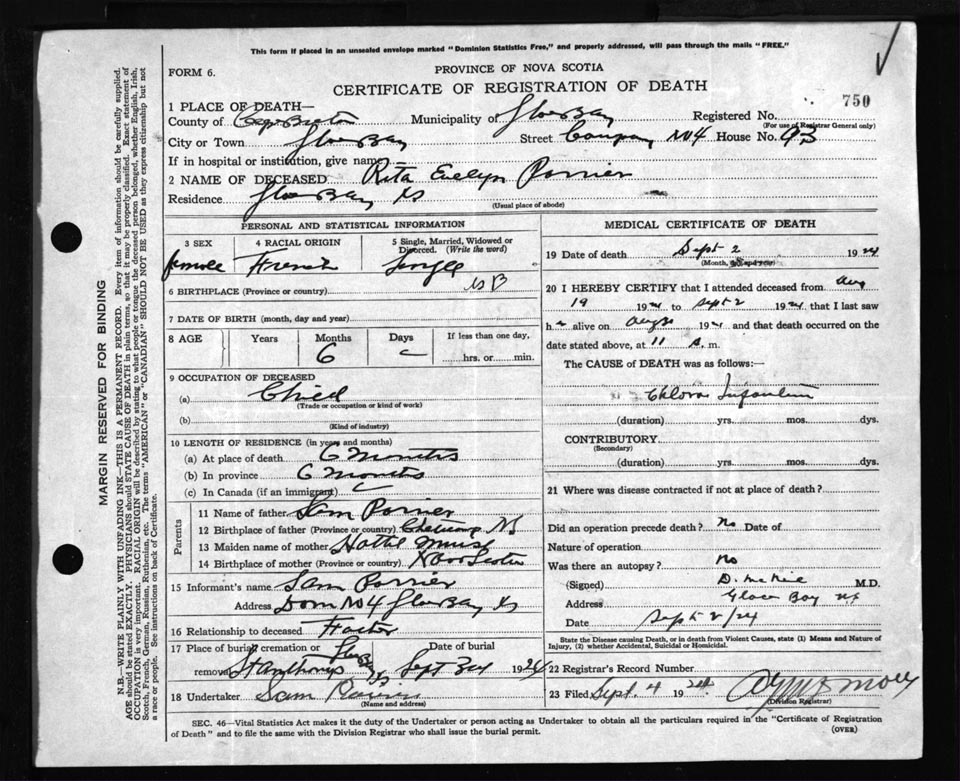 This form if placed in an unsealed envelope marked "Dominion Statistics Free," and properly addressed, will pass through the mails "FREE."
FORM 6.
PROVINCE OF NOVA SCOTIA
CERTIFICATE OF REGISTRATION OF DEATH
750
1 PLACE OF DEATH—
County of Cape Breton Municipality of Glace Bay Registered No.
(For use of Registrar General only)
City or Town Glace Bay Street Company No 4 House No. 93
If in hospital or institution, give name
2 NAME OF DECEASED Rita Evelyn Porrier
Residence Glace Bay NS
(Usual place of abode)
PERSONAL AND STATISTICAL INFORMATION
3 SEX 4 RACIAL ORIGIN 5 Single, Married, Widowed or Divorced. (Write the word)
female French Single
6 BIRTHPLACE (Province or country)
7 DATE OF BIRTH (month, day and year)
8 AGE Years Months Days If less than one day,
6 hrs. or min.
9 OCCUPATION OF DECEASED
(a) Child
(Trade or occupation or kind of work)
(b)
(Kind of industry)
10 LENGTH OF RESIDENCE (in years and months)
(a) At place of death 6 Months
(b) In province 6 Months
(c) In Canada (if an immigrant)
Parents
11 Name of father Sam Porrier
12 Birthplace of father (Province or country) NS
13 Maiden name of mother Hattie
14 Birthplace of mother (Province or country) Nova Scotia
15 Informant's name Sam Porrier
Address Dom No 4 Glace Bay NS
16 Relationship to deceased Father
17 Place of burial, cremation or removal Date of burial
St Anthonys Sept 3rd 1924
18 Undertaker Sam Porrier
(Name and address)
MEDICAL CERTIFICATE OF DEATH
19 Date of death Sept 2 1924
(Month, day, year)
20 I HEREBY CERTIFY that I attended deceased from Aug
19 1924 to Sept 2 1924 that I last saw
h alive on Aug 1924 and that death occurred on
date stated above, at 11 a. m.
The CAUSE OF DEATH was as follows:—
Cholora Infantum
(duration) yrs. mos. dys.
CONTRIBUTORY
(Secondary)
(duration) yrs. mos. dys.
21 Where was disease contracted if not at place of death?
Did an operation precede death? No Date of
Nature of operation
Was there an autopsy? No
(Signed) D. McNeil M.D.
Address Glace Bay NS
Date Sept 2/24
State the Disease causing Death, or in death from Violent Causes, state (1) Means and Nature of
Injury, (2) whether Accidental, Suicidal or Homicidal.
22 Registrar's Record Number
23 Filed Sept. 4 1924
(Division Registrar)
SEC. 46—Vital Statistics Act makes it the duty of the Undertaker or person acting as Undertaker to obtain all the particulars required in the "Certificate of Registration
of Death" and to file the same with the Division Registrar who shall issue the burial permit.
(OVER)
MARGIN RESERVED FOR BINDING
N.B.—WRITE PLAINLY WITH UNFADING INK—THIS IS A PERMANENT RECORD. Every item of information should be carefully supplied.
AGE should be stated EXACTLY. PHYSICIANS should STATE CAUSE OF DEATH in plain terms, so that it may be properly classified. Exact statement of
OCCUPATION is very important. RACIAL ORIGIN will be described by stating to what people or tongue the deceased person belonged, whether English, Irish,
Scotch, French, German, Russian, Ruthenian, etc. The terms "AMERICAN" or "CANADIAN" SHOULD NOT BE USED as they express citizenship but not
a race or people. See instructions on back of Certificate.